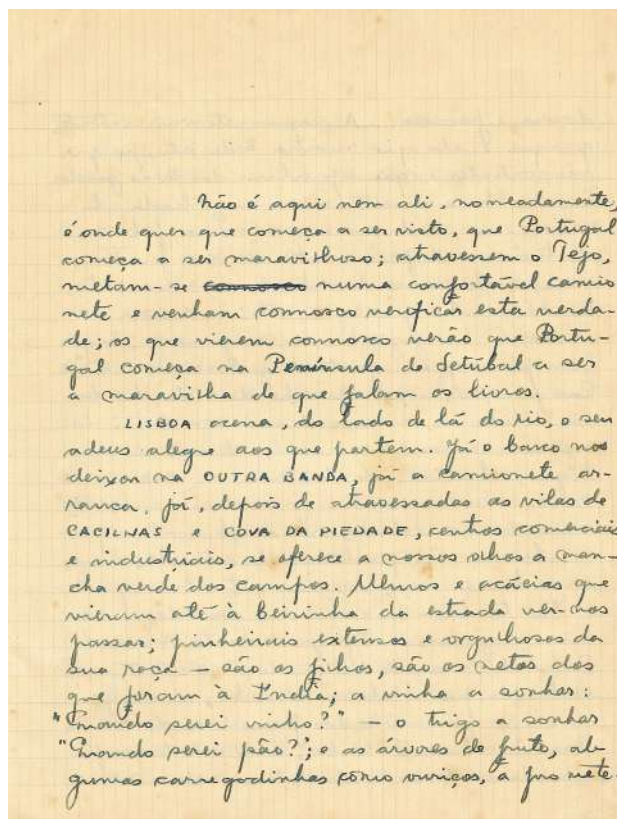 Não é aqui nem ali, nomeadamente,
é onde quer que começa a ser visto, que Portugal
começa a ser maravilhoso; atravessem o Tejo,
metam-se connosco numa confortável camio
nete e venham connosco verificar esta verda-
de; os que vierem connosco verão que Portu-
gal começa na Península de Setúbal a ser
a maravilha de que falam os livros.
LISBOA acena, do lado de lá do rio, o seu
adeus alegre aos que partem. Já o barco nos
deixou na OUTRA BANDA, já a camionete ar-
ranca, já, depois de atravessadas as vilas de
CACILHAS e COVA DA PIEDADE, centros comerciais
e industriais, se oferece a nossos olhos a man-
cha verde dos campos. Ulmos e acácias que
vieram até à beirinha da estrada ver-nos
passar; pinheirais extensos e orgulhosos da
sua raça — são os filhos, são os netos dos
que foram à Índia; a vinha a sonhar:
"Quando serei vinho?" — o trigo a sonhar
"Quando serei pão?"; e as árvores de fruto, al-
gumas carregadinhas como ouriços, a promete-